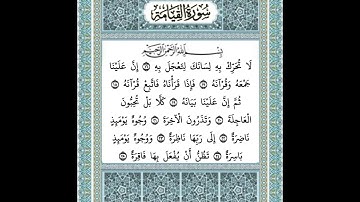 سُورَةُ القِيَامَة
بِسْمِ اللَّهِ الرَّحْمَنِ الرَّحِيمِ
لَا تُحَرِّكْ بِهِ لِسَانَكَ لِتَعْجَلَ بِهِ ﴿١٦﴾ إِنَّ عَلَيْنَا
جَمْعَهُ وَقُرْآنَهُ ﴿١٧﴾ فَإِذَا قَرَأْنَاهُ فَاتَّبِعْ قُرْآنَهُ ﴿١٨﴾
ثُمَّ إِنَّ عَلَيْنَا بَيَانَهُ ﴿١٩﴾ كَلَّا بَلْ تُحِبُّونَ
الْعَاجِلَةَ ﴿٢٠﴾ وَتَذَرُونَ الْآخِرَةَ ﴿٢١﴾ وُجُوهٌ يَوْمَئِذٍ
نَاضِرَةٌ ﴿٢٢﴾ إِلَى رَبِّهَا نَاظِرَةٌ ﴿٢٣﴾ وَوُجُوهٌ يَوْمَئِذٍ
بَاسِرَةٌ ﴿٢٤﴾ تَظُنُّ أَنْ يُفْعَلَ بِهَا فَاقِرَةٌ ﴿٢٥﴾